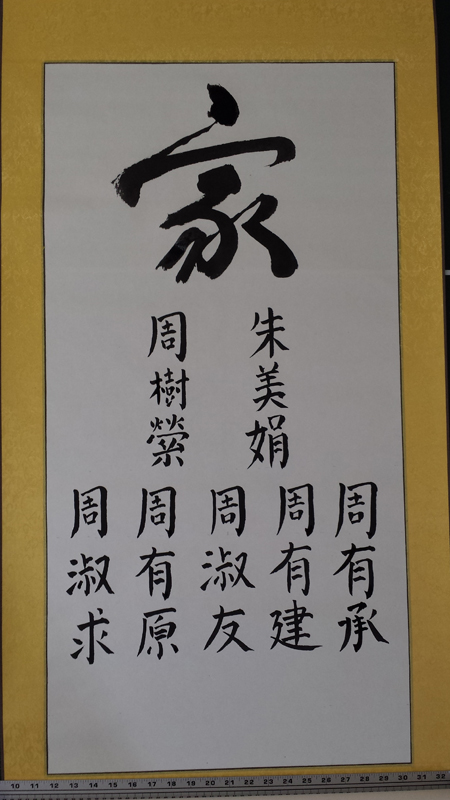 家
朱美娟
周樹縈
周有承
周有建
周淑友
周有原
周淑求
10 11 12 13 14 15 16 17 18 19 20 21 22 23 24 25 26 27 28 29 30 31 32